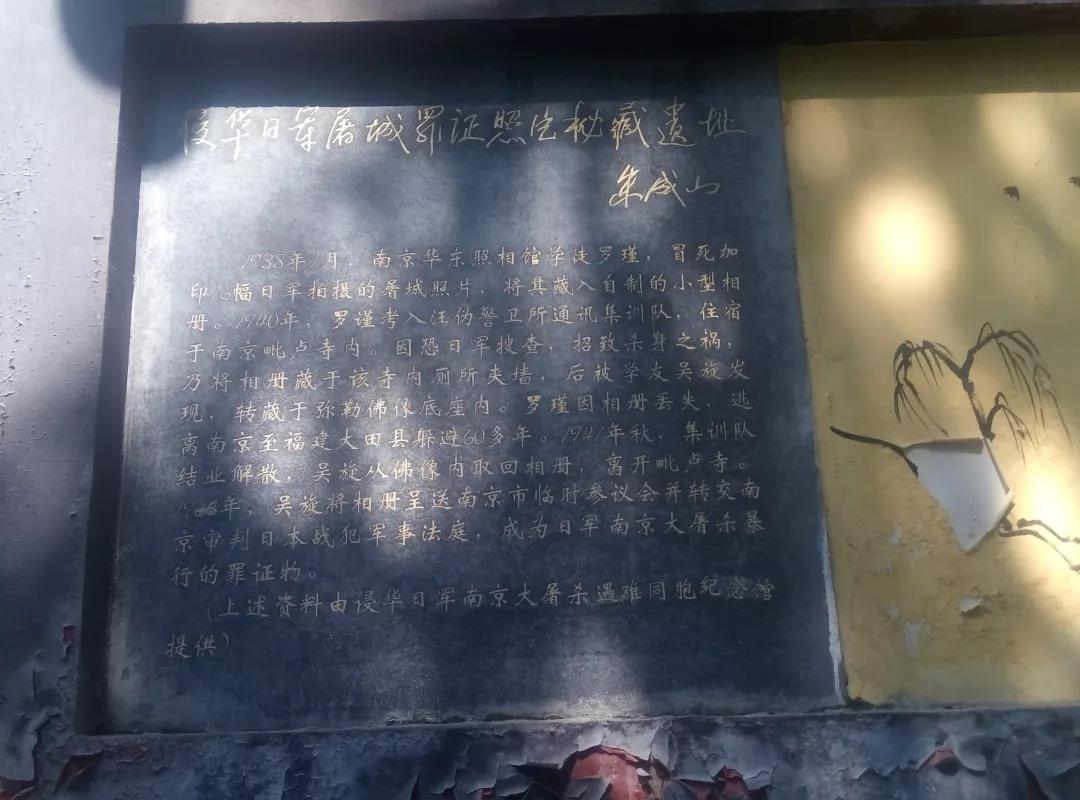 侵华日军屠城罪证照片秘藏遗址
朱成山
1938年1月，南京华东照相馆学徒罗瑾，冒死加
印16幅日军拍摄的屠城照片，将其藏入自制的小型相
册。1940年，罗瑾考入汪伪警卫所通讯集训队，住宿
于南京毗卢寺内。因恐日军搜查，招致杀身之祸，
乃将相册藏于该寺内厕所夹墙，后被学友吴旋发
现，转藏于弥勒佛像底座内。罗瑾因相册丢失，逃
离南京至福建大田县躲避60多年。1941年秋，集训队
结业解散，吴旋从佛像内取回相册，离开毗卢寺。
年，吴旋将相册呈送南京市临时参议会并转交南
京审判日本战犯军事法庭，成为日军南京大屠杀暴
行的罪证物。
（上述资料由侵华日军南京大屠杀遇难同胞纪念馆
提供）